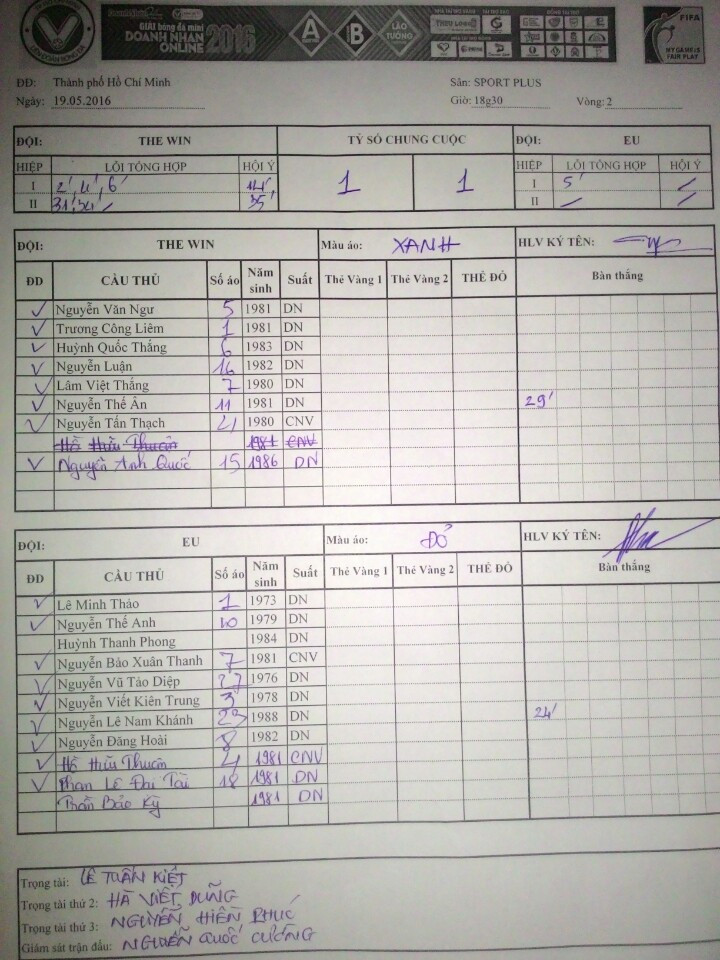 GIẢI bóng đá mini
DOANH NHÂN
ONLINE 2016
A B LÃO TƯỚNG
FIFA
MY GAME IS
FAIR PLAY
ĐĐ: Thành phố Hồ Chí Minh Sân: SPORT PLUS
Ngày: 19.05.2016 Giờ: 18g30 Vòng: 2
ĐỘI: THE WIN TỶ SỐ CHUNG CUỘC ĐỘI: EU
HIỆP LỖI TỔNG HỢP HỘI Ý 1 1 HIỆP LỖI TỔNG HỢP HỘI Ý
I 2', 4', 6' 14' I 5' /
II 31', 34' / 35' II / /
ĐỘI: THE WIN Màu áo: XANH HLV KÝ TÊN:
ĐD CẦU THỦ Số áo Năm sinh Suất Thẻ Vàng 1 Thẻ Vàng 2 THẺ ĐỎ Bàn thắng
✓ Nguyễn Văn Ngư 5 1981 DN
✓ Trương Công Liêm 1 1981 DN
✓ Huỳnh Quốc Thắng 6 1983 DN
✓ Nguyễn Luận 16 1982 DN
✓ Lâm Việt Thắng 7 1980 DN
✓ Nguyễn Thế Ân 11 1981 DN 29'
✓ Nguyễn Tấn Thạch 4 1980 CNV
Hồ Hữu Thuận 1981 CNV
✓ Nguyễn Anh Quốc 15 1986 DN
ĐỘI: EU Màu áo: ĐỎ HLV KÝ TÊN:
ĐD CẦU THỦ Số áo Năm sinh Suất Thẻ Vàng 1 Thẻ Vàng 2 THẺ ĐỎ Bàn thắng
✓ Lê Minh Thảo 1 1973 DN
✓ Nguyễn Thế Anh 10 1979 DN
Huỳnh Thanh Phong 1984 DN
✓ Nguyễn Bảo Xuân Thanh 7 1981 CNV
✓ Nguyễn Vũ Tảo Diệp 27 1976 DN
✓ Nguyễn Viết Kiên Trung 3 1978 DN
✓ Nguyễn Lê Nam Khánh 23 1988 DN 24'
✓ Nguyễn Đăng Hoài 8 1982 DN
✓ Hồ Hữu Thuận 4 1981 CNV
✓ Phan Lê Đại Tài 18 1981 DN
Trần Bảo Kỳ 1981 DN
Trọng tài: LÊ TUẤN KIỆT
Trọng tài thứ 2: HÀ VIỆT DŨNG
Trọng tài thứ 3: NGUYỄN HIỀN PHÚC
Giám sát trận đấu: NGUYỄN QUỐC CƯỜNG